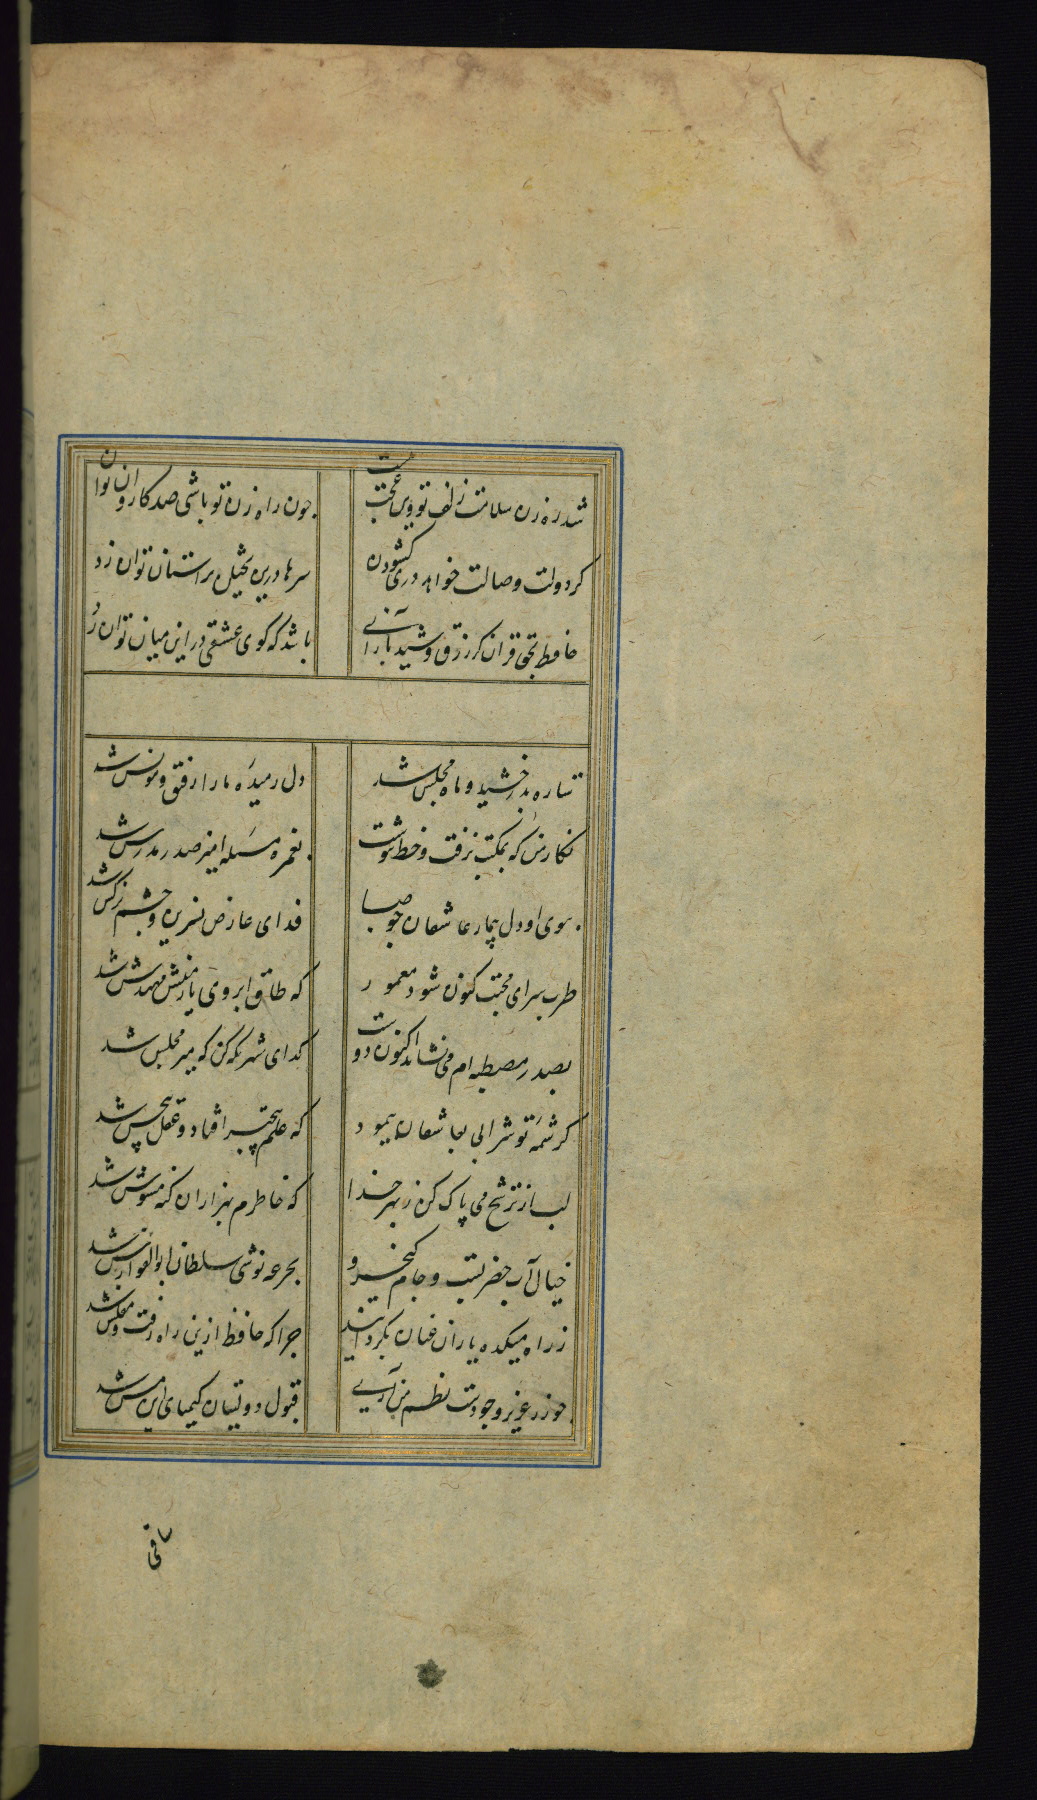 شد رهزن سلامت زلف تو وین عجب نیست چون راه زن تو باشی صد کاروان توان زد
کر دولت وصالت خواهد دری کشودن سرها درین تخیل بر استان توان زد
حافظ بحق قران کز زرق و شید باز آی باشد که کوی عشقی در این میان توان زد
ستاره بدرخشید و ماه مجلس شد دل رمیده ما را رفیق و مونس شد
نکار من که بمکتب نرفت و خط ننوشت بغمزه مسئله اموز صد مدرس شد
ببوی او دل بیمار عاشقان چو صبا فدای عارض نسرین و چشم نرکس شد
طرب سرای محبت کنون شود معمور که طاق ابروی یار منش مهندس شد
بصدر مصطبه ام می نشاند اکنون دوست کدای شهر نکه کن که میر مجلس شد
کرشمه تو شرابی بعاشقان پیمود که علم بیخبر افتاد و عقل بیحس شد
لب از ترشح می پاک کن ز بهر خدا که خاطرم بهزاران کنه موسوس شد
خیال آب خضر بست و جام کیخسرو بجرعه نوشی سلطان ابوالفوارس شد
ز راه میکده یاران عنان بکردانید چرا که حافظ ازین راه رفت و مفلس شد
چو زر عزیز وجودست نظم من آری قبول دولتیان کیمیای این مس شد